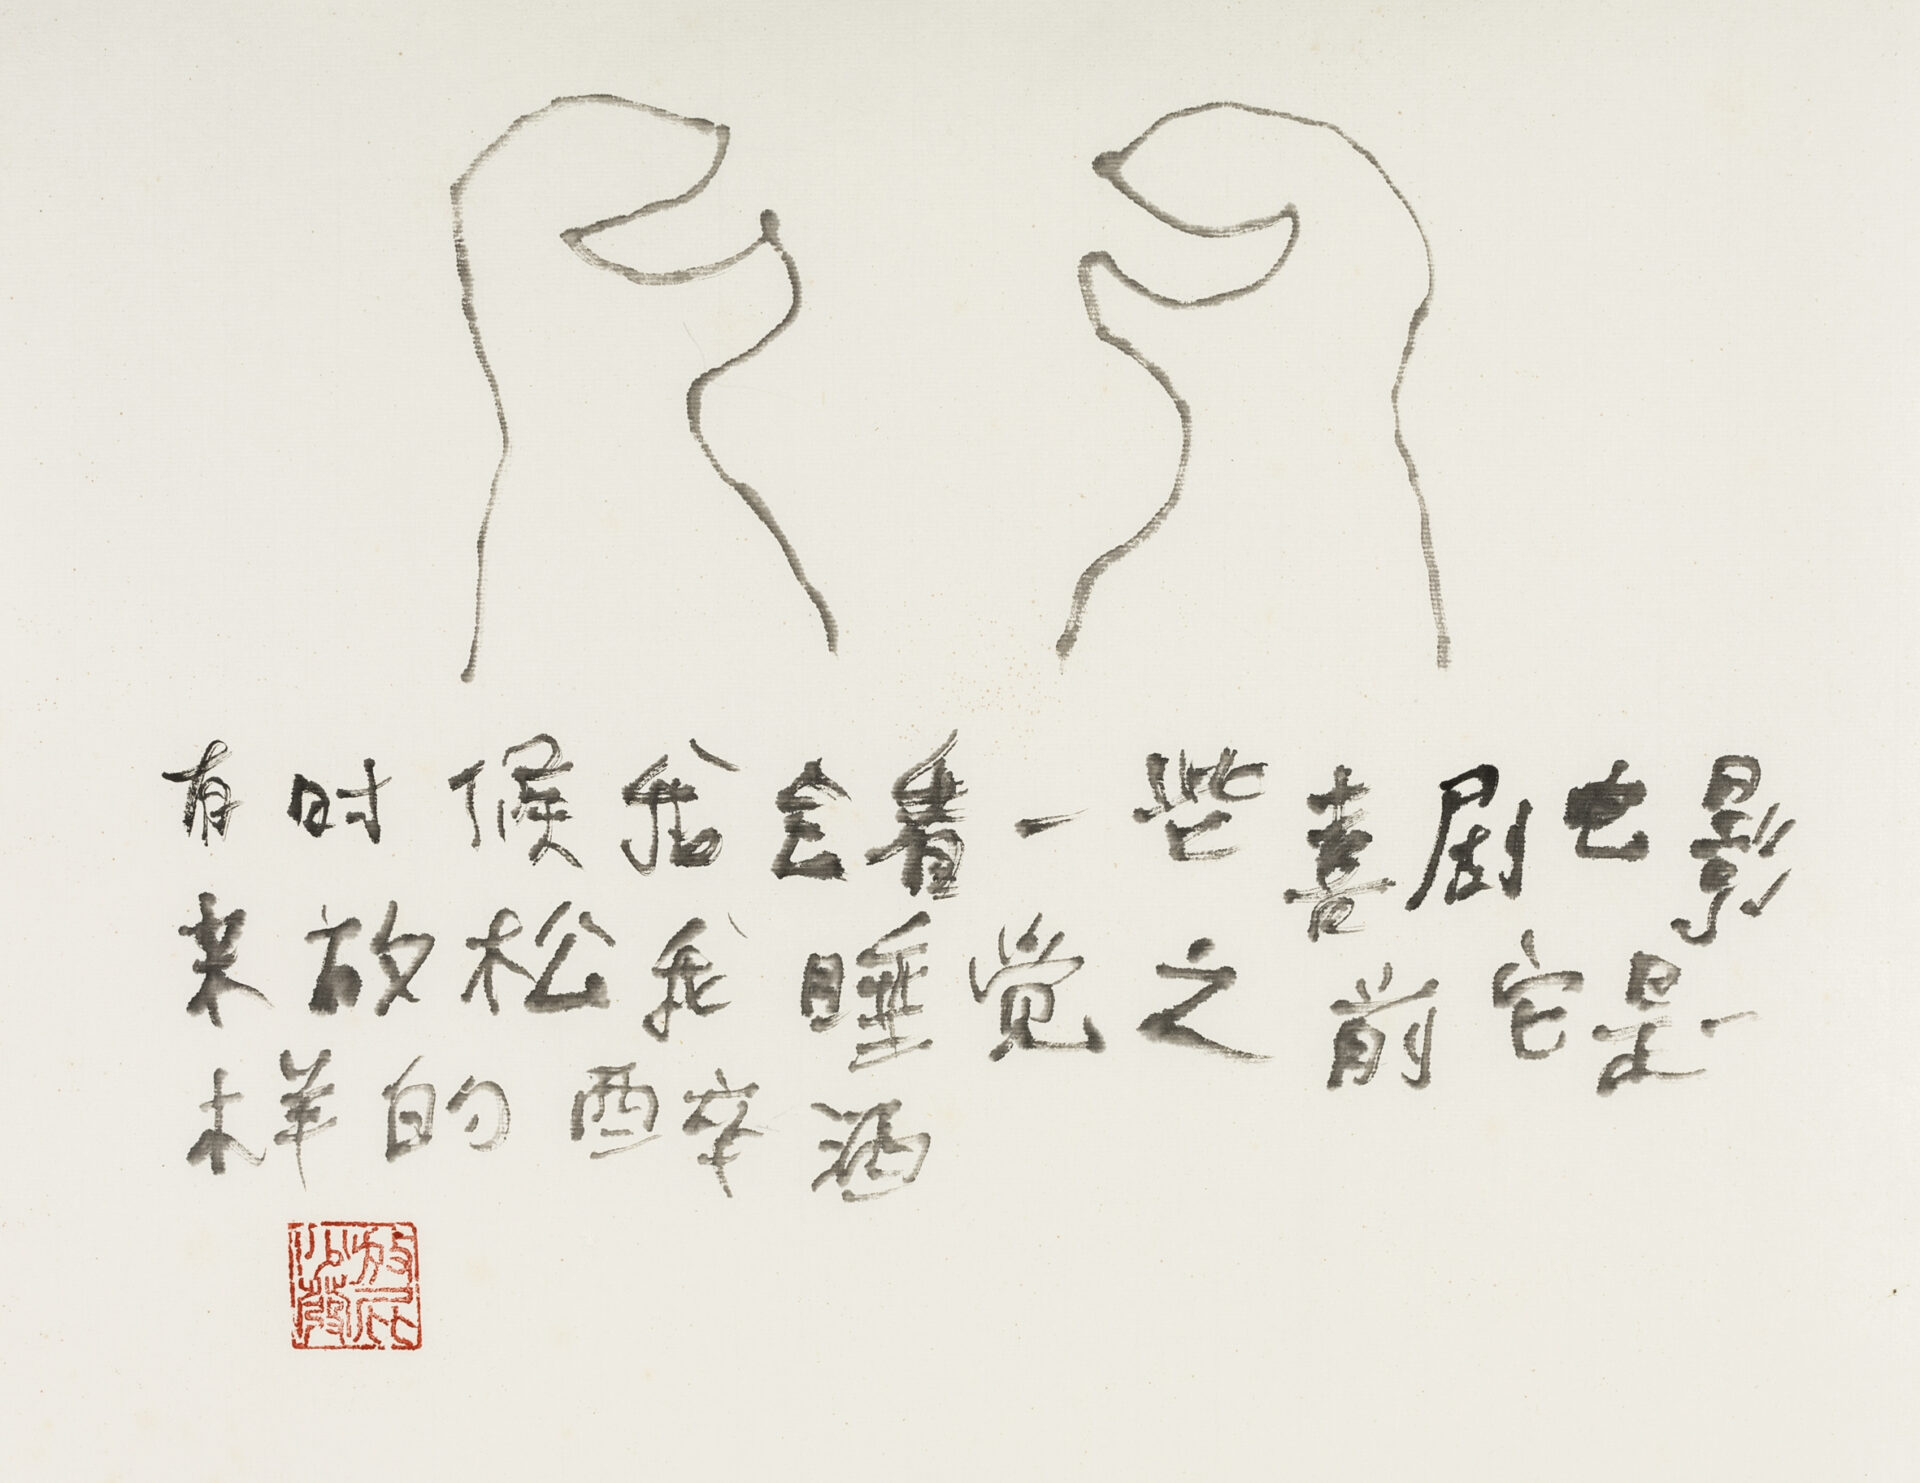 有时候我会看一些喜剧电影
来放松我睡觉之前它是一
样的醉
放屁